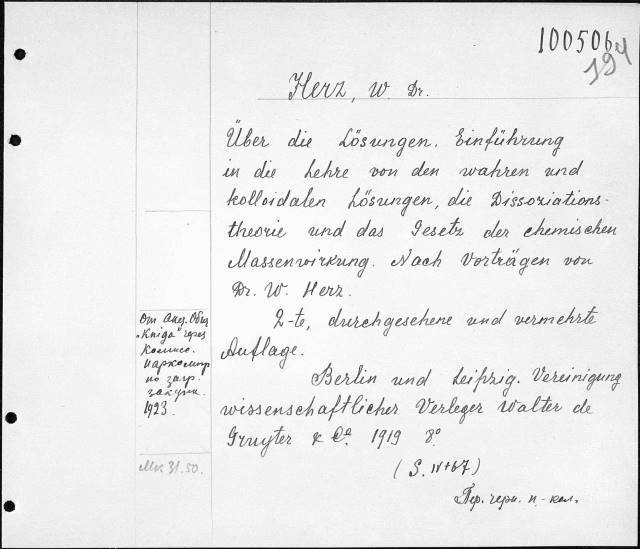 100506
194
Herz, W. Dr.
Über die Lösungen. Einführung
in die Lehre von den wahren und
kolloidalen Lösungen, die Dissoziations-
theorie und das Gesetz der chemischen
Massenwirkung. Nach Vorträgen von
Dr. W. Herz.
2-te, durchgesehene und vermehrte
Auflage.
Berlin und Leipzig. Vereinigung
wissenschaftlicher Verleger Walter de
Gruyter & Co 1919 8º
(S. IV+67)
Пер. черн. п.-кол.
От Акц. Общ
„Kniga" через
Комисс.
Наркомпр
по загр.
закупк.
1923.
Mк 31.50.